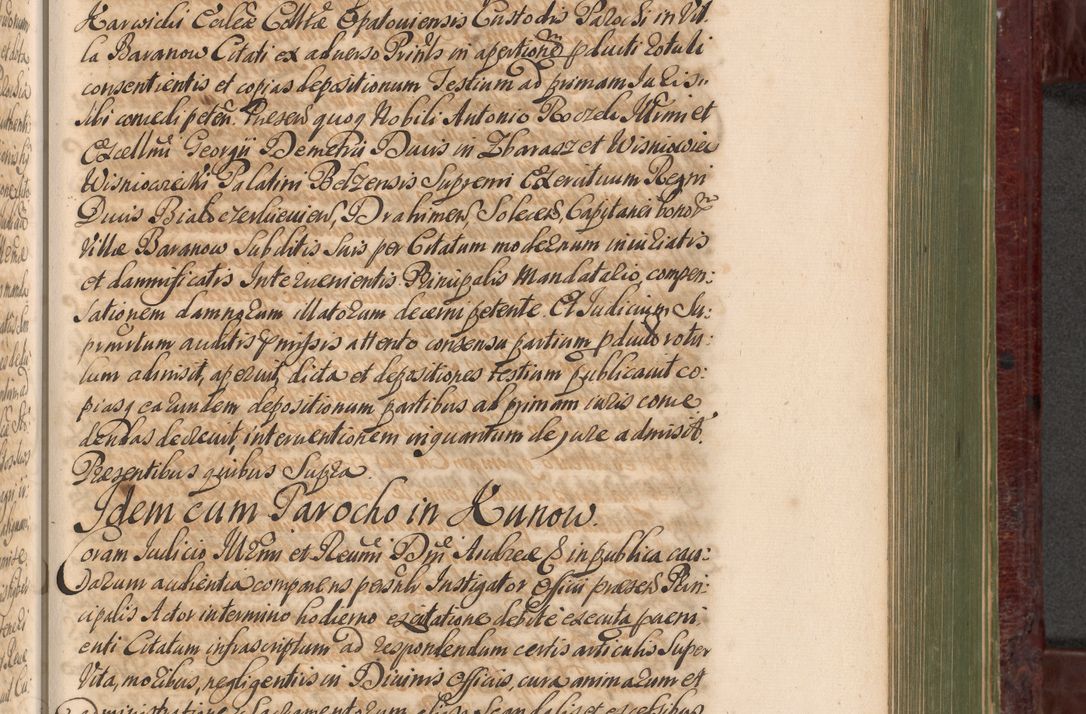 Karwicki Ecclae Colltae Opatoviensis Custodis Parochi in Vil
la Baranow Citati ex adverso Prinls in apertionem pducti rotuli
consentientis et copias depositionum Testium ad primam Juris si
bi concedi peten. Praesen quoq Nobili Antonio Illrmi et
Excellmi Georgii Demetrii Ducis in Zbaraz et Wisniowiec
Wisniowiecki Palatini Belzensis Supremi Exercituum Regni
Ducis Capitanei bonor
Villae Baranow Subditis Suis per Citatum modernum iniuriatis
et damnificatis Intervenientis Principalis Mandatario, compen:
sationem damnorum illatorum decerni petente. Et Judicium Su:
prascriptum auditis pmissis attento consensu partium pducto rotu:
lum admisit, aperuit, dicta et depositiones testium publicavit co:
piasq earundem depositionum partibus ad primam iuris conce
dendas decrevit, interventionem inquantum de jure admisit.
Praesentibus quibus Supra.
Idem cum Parocho in Kunow.
Coram Judicio Illrmi et Reverendmi Dni Andreae in publica cau:
sarum audientia comparens personlr Instigator Officii praesen Prin:
cipalis Actor in termino hodierno ex citatione debite executa proveni
enti Citatum infrascriptum ad respondendum certis articulis Super
Vita, moribus, negligentiis in Divinis officiis, cura animarum et
administratione Sacramentorum aliisq Scandalis et excessibus